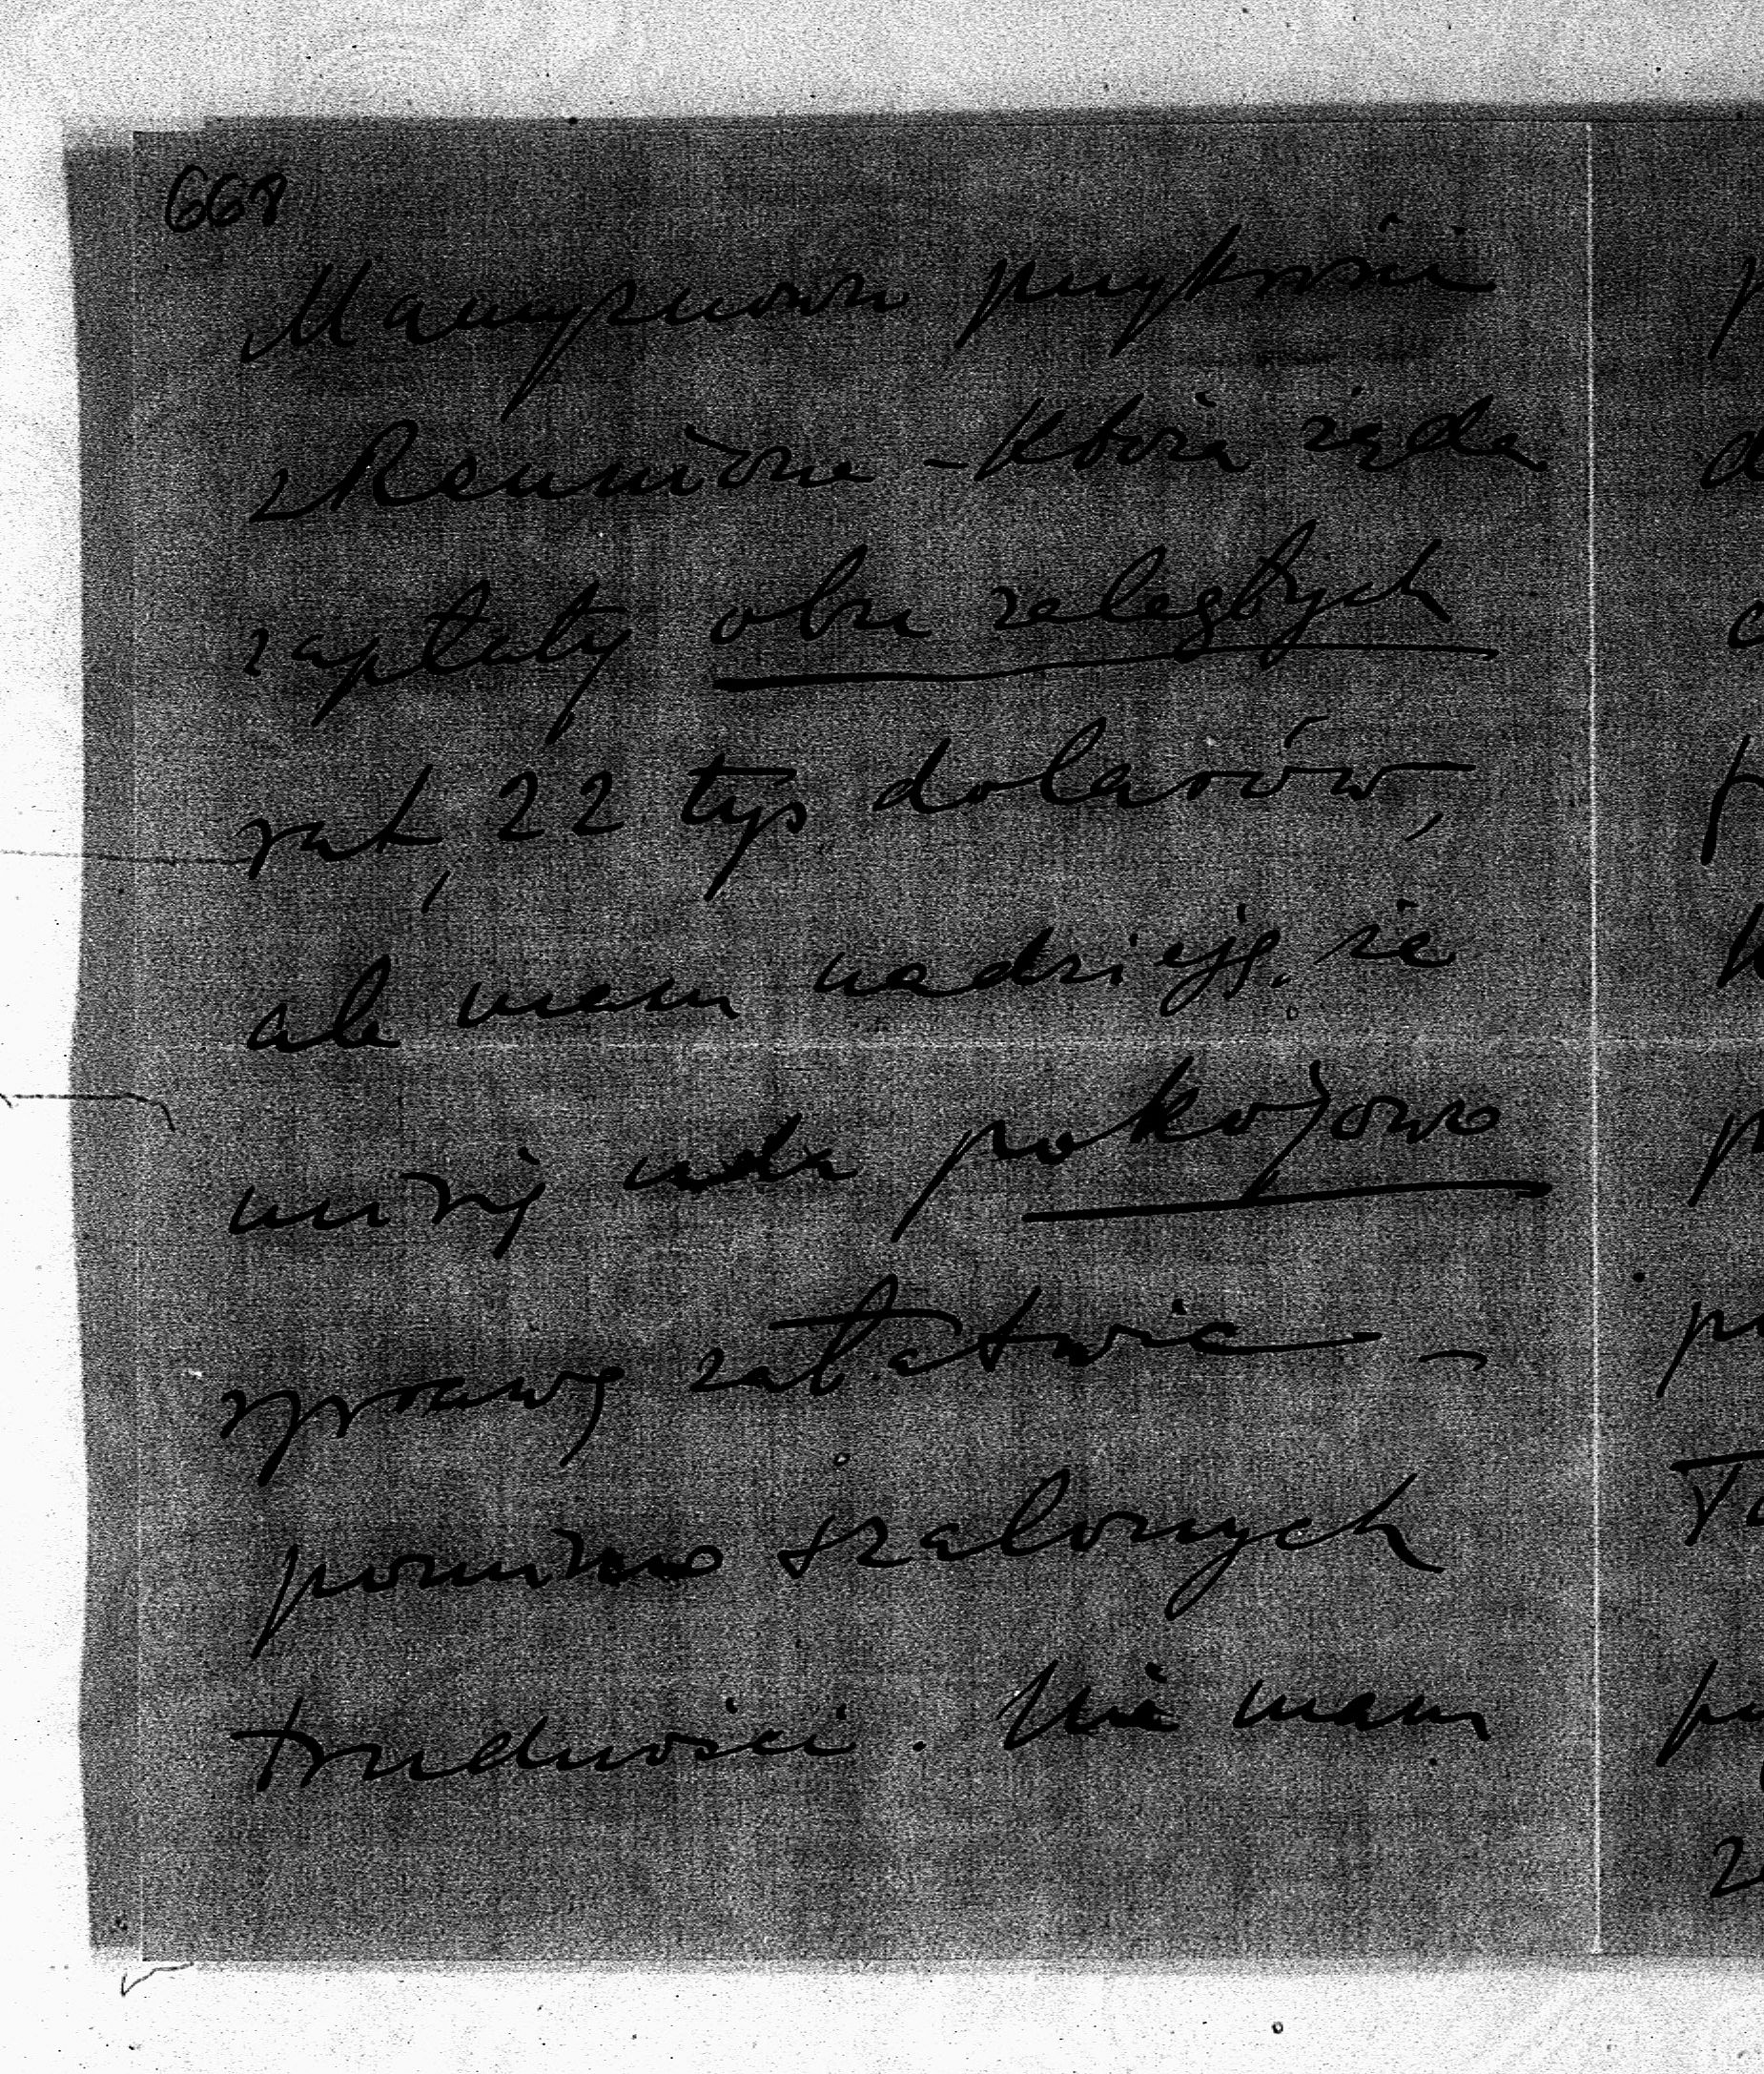 668
Mamy znowu przykrości
z Reunione - która żąda
zapłaty obu zaległych
rat, 22 tys dolarów,
ale mam nadzieję, że
mi się uda pokojowo
sprawę załatwić -
pomimo szalonych
trudności. Nie mam